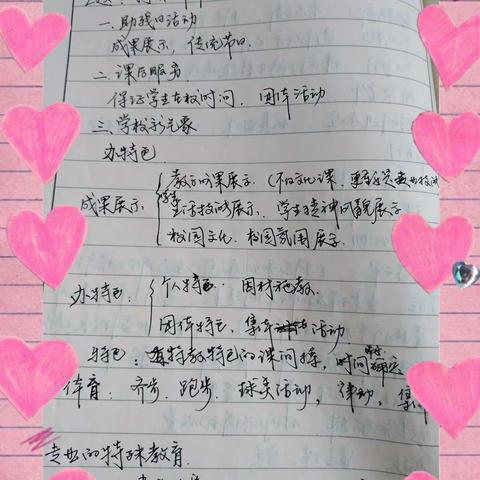 一.助残日活动
成果展示,传统节日.
二.课后服务
保证学生在校时间.团体活动
三.学校新气象
办特色
成果展示
教学成果展示.(不只文化课,更
生活技能展示、学生精神风貌展示
校园文化.校园氛围展示.
办特色:
个人特色.因材施教.
团体特色.集体活动
特色:有特教特色的课间操,时间
体育.齐步.跑步.球类活动,律动,集体
专业的特殊教育.